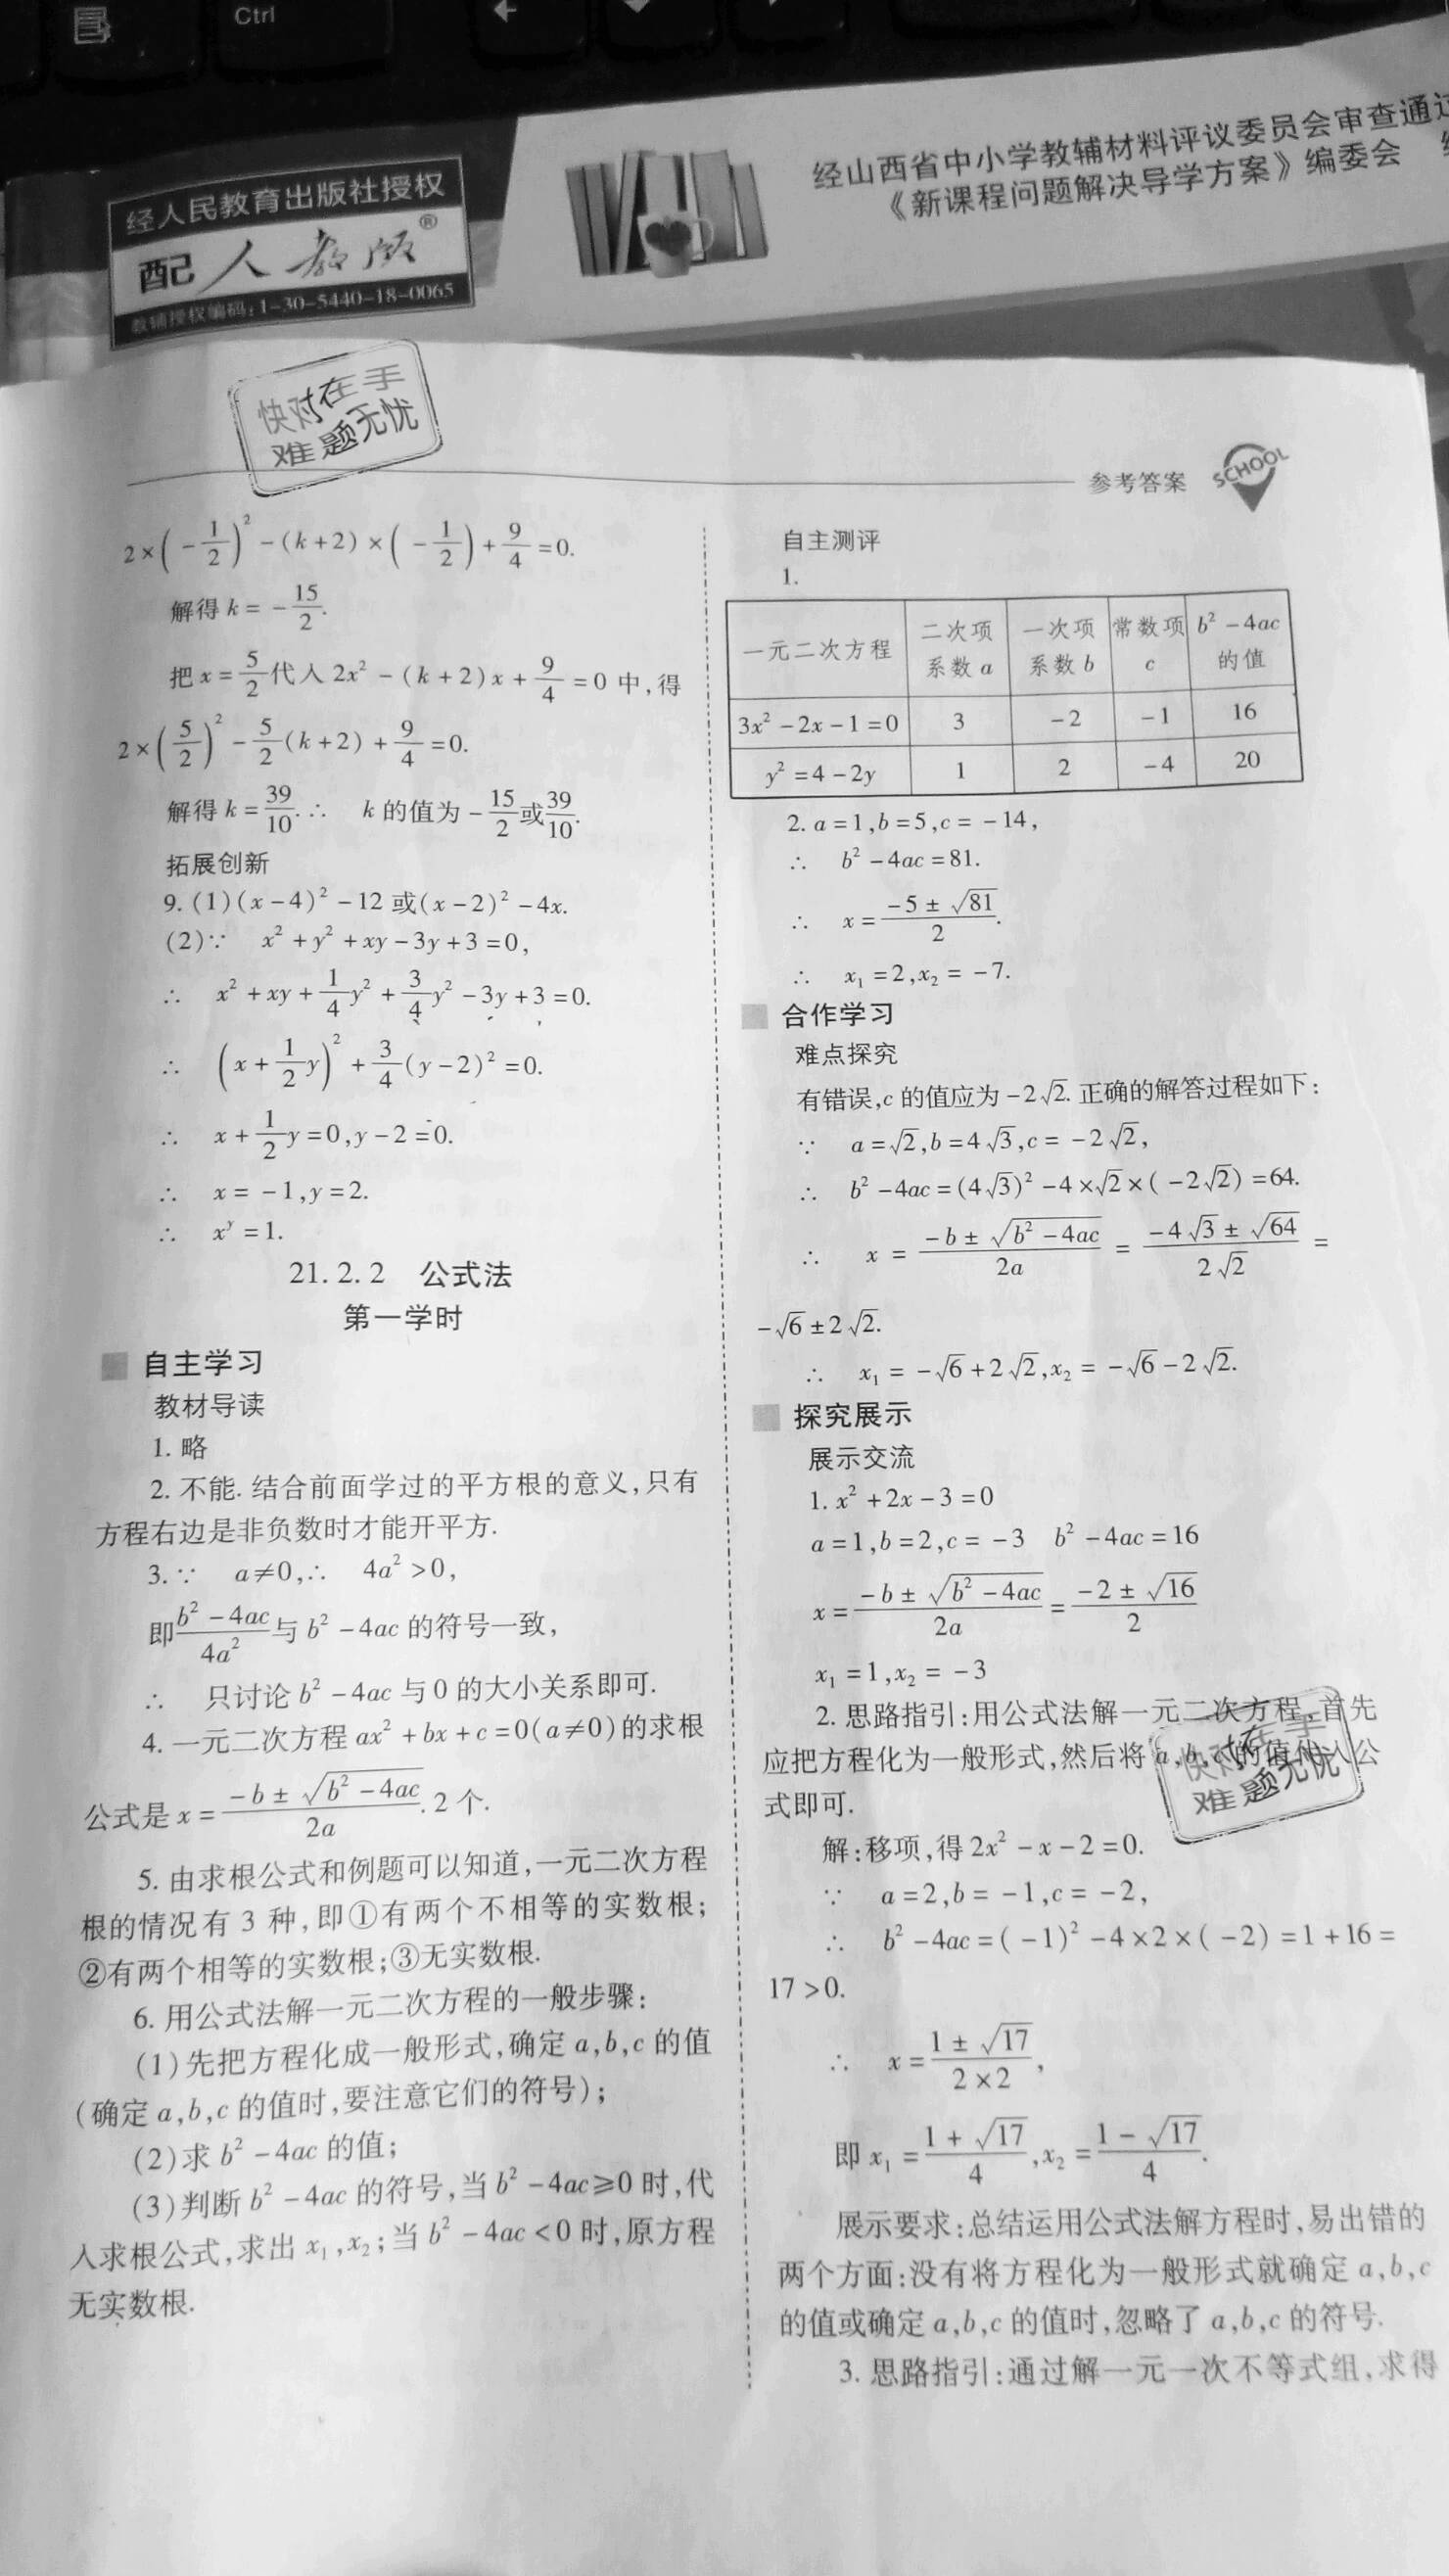 Ctrl
经山西省中小学教辅材料评议委员会审查通过
《新课程问题解决导学方案》编委会
经人民教育出版社授权
配人教版®
教辅授权编码:1-30-5440-18-0065
快对在手
难题无忧
参考答案
SCHOOL
2×(-1/2)²-(k+2)×(-1/2)+9/4=0.
解得 k=-15/2.
把 x=5/2 代入 2x²-(k+2)x+9/4=0 中,得
2×(5/2)²-5/2(k+2)+9/4=0.
解得 k=39/10.∴ k 的值为-15/2或39/10.
拓展创新
9.(1)(x-4)²-12 或(x-2)²-4x.
(2)∵ x²+y²+xy-3y+3=0,
∴ x²+xy+1/4y²+3/4y²-3y+3=0.
∴ (x+1/2y)²+3/4(y-2)²=0.
∴ x+1/2y=0,y-2=0.
∴ x=-1,y=2.
∴ xʸ=1.
21.2.2 公式法
第一学时
自主学习
教材导读
1. 略
2. 不能. 结合前面学过的平方根的意义,只有
方程右边是非负数时才能开平方.
3.∵ a≠0,∴ 4a²>0,
即(b²-4ac)/4a²与 b²-4ac 的符号一致,
∴ 只讨论 b²-4ac 与 0 的大小关系即可.
4. 一元二次方程 ax²+bx+c=0(a≠0)的求根
公式是 x=(-b±√(b²-4ac))/2a. 2 个.
5. 由求根公式和例题可以知道,一元二次方程
根的情况有 3 种,即①有两个不相等的实数根;
②有两个相等的实数根;③无实数根.
6. 用公式法解一元二次方程的一般步骤:
(1)先把方程化成一般形式,确定 a,b,c 的值
(确定 a,b,c 的值时,要注意它们的符号);
(2)求 b²-4ac 的值;
(3)判断 b²-4ac 的符号,当 b²-4ac≥0 时,代
入求根公式,求出 x₁,x₂;当 b²-4ac<0 时,原方程
无实数根.
自主测评
1.
一元二次方程 二次项系数 a 一次项系数 b 常数项 c b²-4ac 的值
3x²-2x-1=0 3 -2 -1 16
y²=4-2y 1 2 -4 20
2. a=1,b=5,c=-14,
∴ b²-4ac=81.
∴ x=(-5±√81)/2.
∴ x₁=2,x₂=-7.
合作学习
难点探究
有错误,c 的值应为-2√2. 正确的解答过程如下:
∵ a=√2,b=4√3,c=-2√2,
∴ b²-4ac=(4√3)²-4×√2×(-2√2)=64.
∴ x=(-b±√(b²-4ac))/2a=(-4√3±√64)/2√2=
-√6±2√2.
∴ x₁=-√6+2√2,x₂=-√6-2√2.
探究展示
展示交流
1. x²+2x-3=0
a=1,b=2,c=-3 b²-4ac=16
x=(-b±√(b²-4ac))/2a=(-2±√16)/2
x₁=1,x₂=-3
2. 思路指引:用公式法解一元二次方程,首先
应把方程化为一般形式,然后将 a,b,c 的值代入公
式即可.
快对在手
难题无忧
解:移项,得 2x²-x-2=0.
∵ a=2,b=-1,c=-2,
∴ b²-4ac=(-1)²-4×2×(-2)=1+16=
17>0.
∴ x=(1±√17)/(2×2),
即 x₁=(1+√17)/4,x₂=(1-√17)/4.
展示要求:总结运用公式法解方程时,易出错的
两个方面:没有将方程化为一般形式就确定 a,b,c
的值或确定 a,b,c 的值时,忽略了 a,b,c 的符号.
3. 思路指引:通过解一元一次不等式组,求得